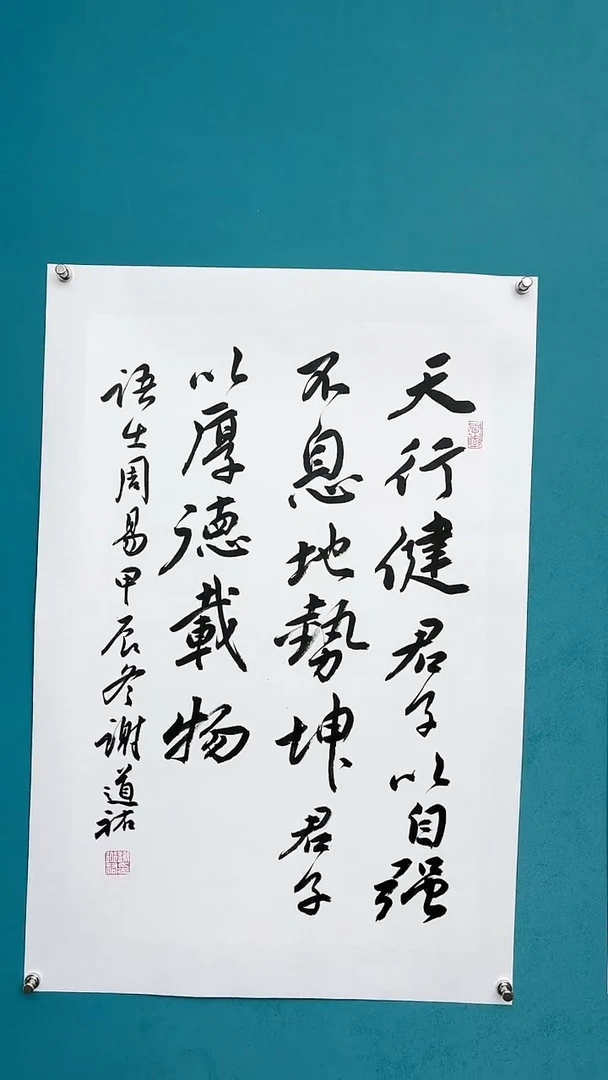 天行健君子以自强
不息地勢坤君子
以厚德載物
語出周易甲辰冬谢道祐